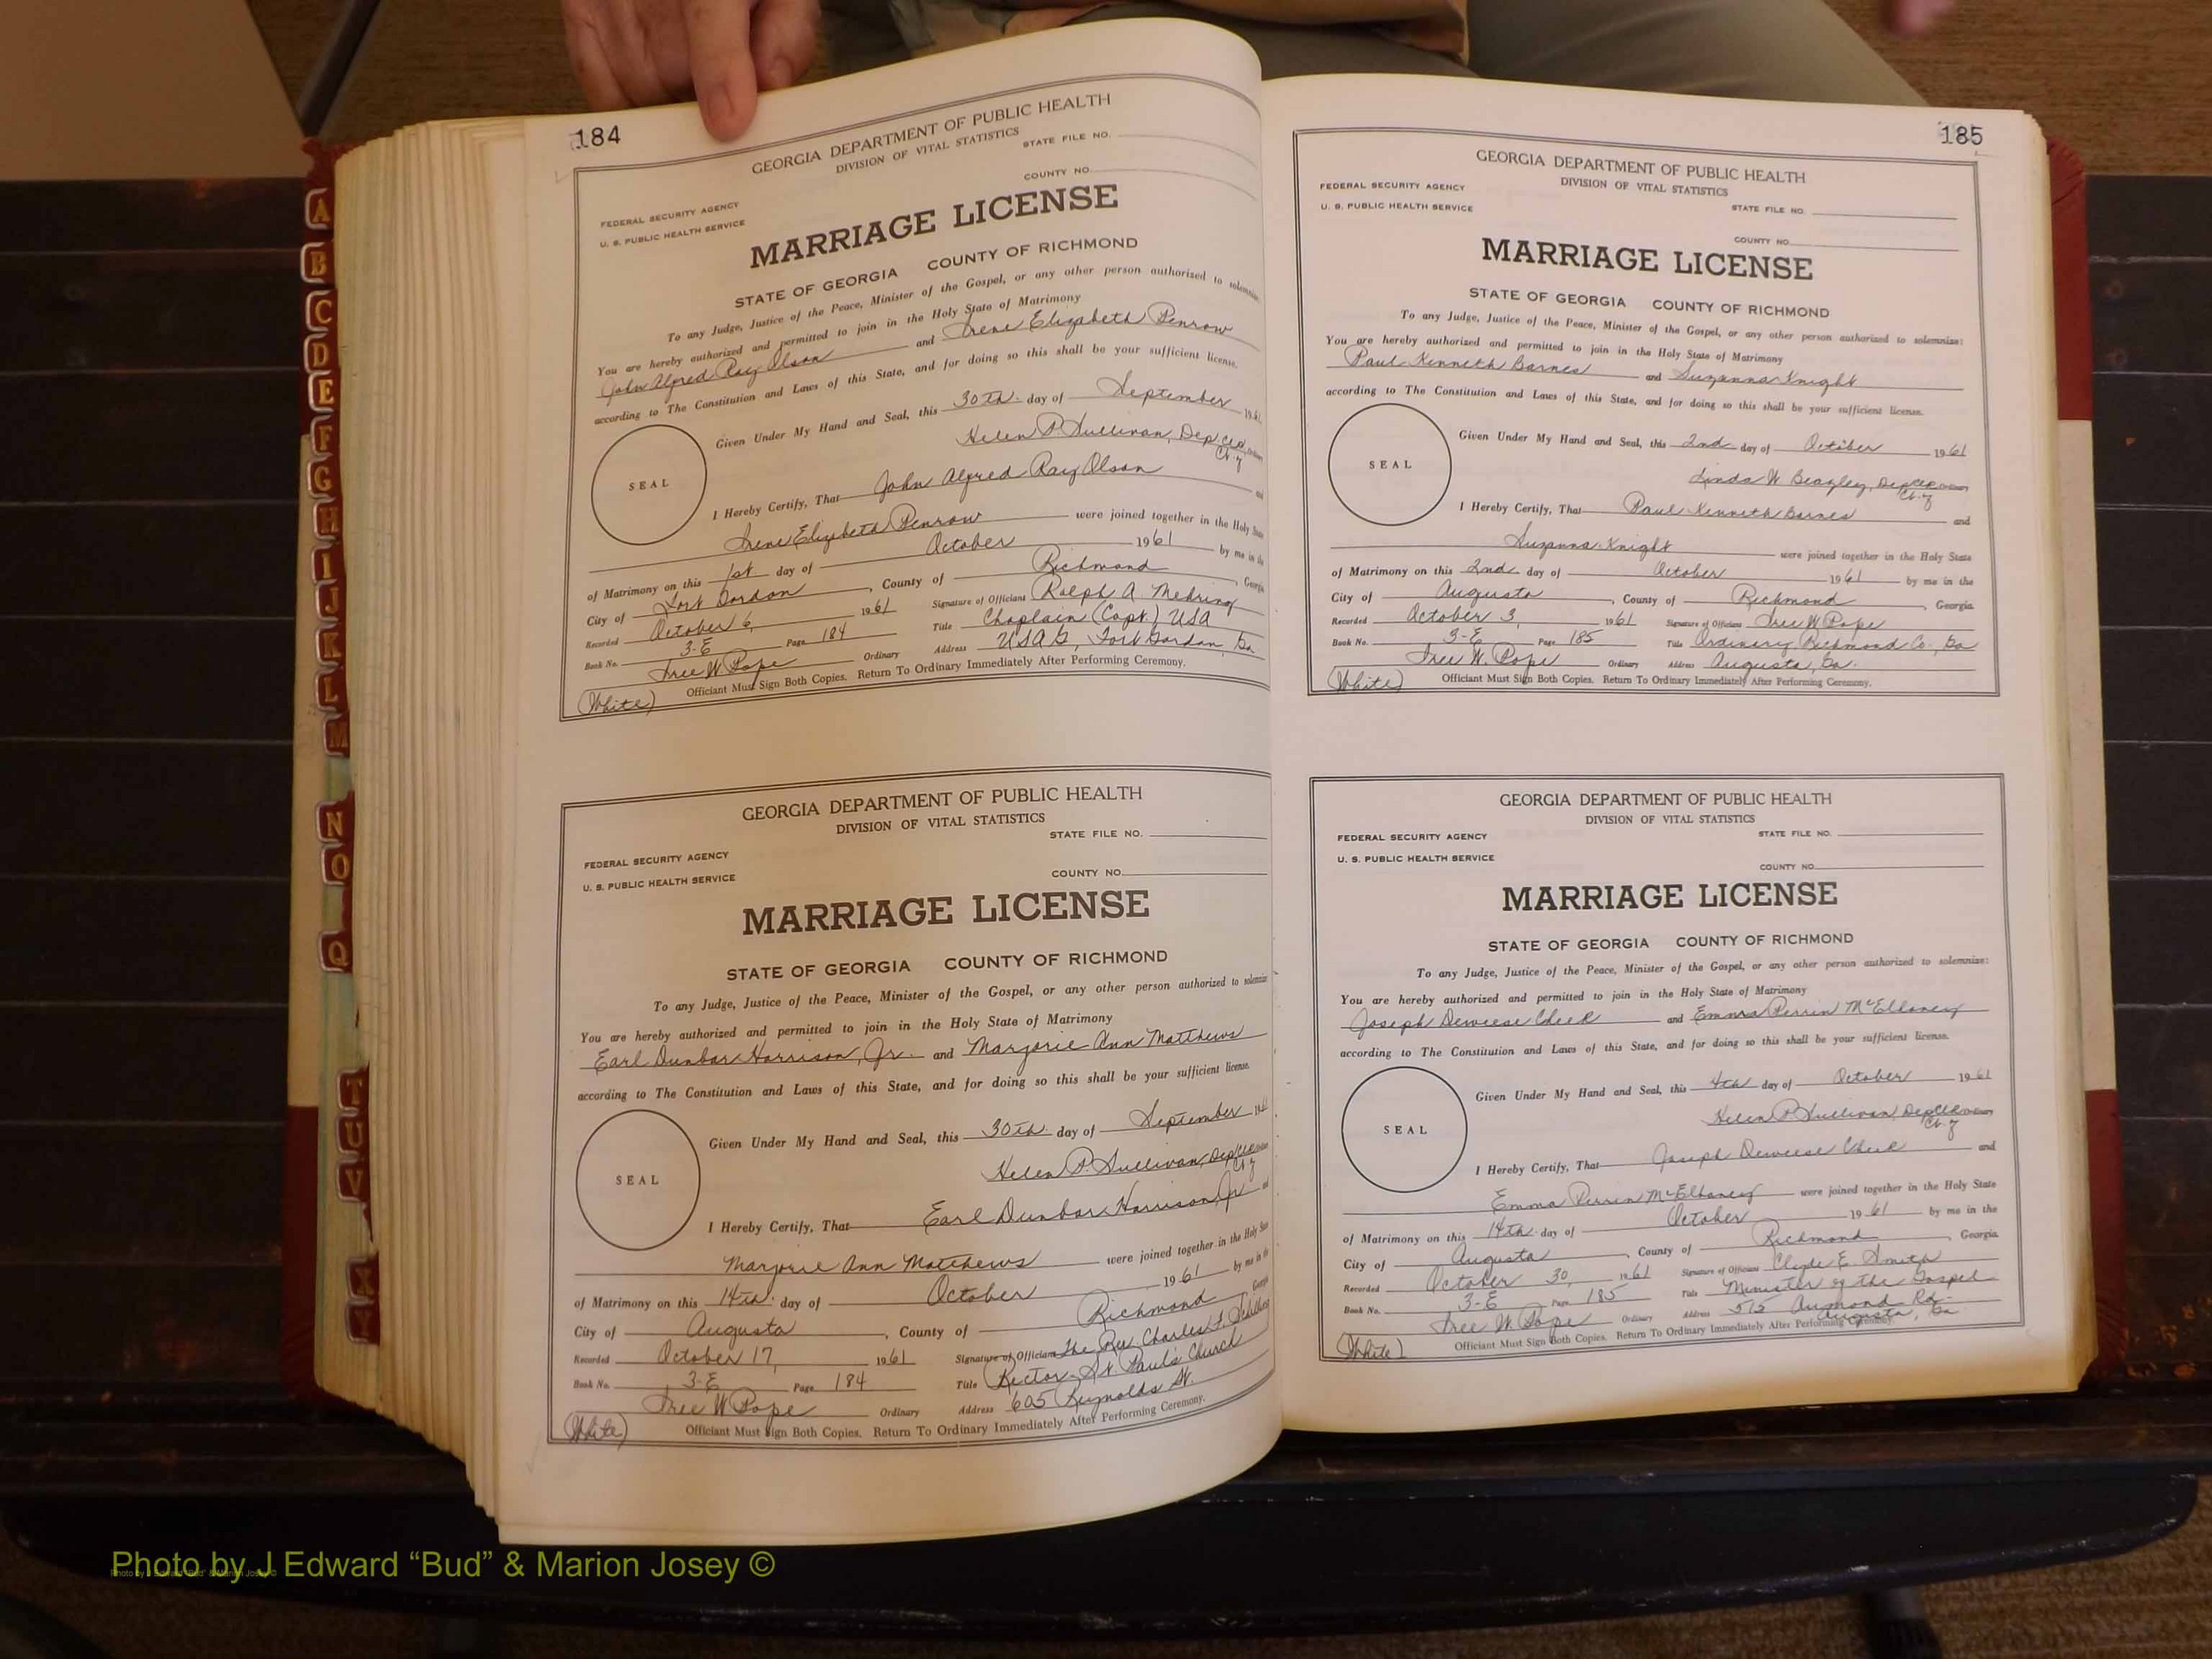 184
GEORGIA DEPARTMENT OF PUBLIC HEALTH
DIVISION OF VITAL STATISTICS
STATE FILE NO.
COUNTY NO.
FEDERAL SECURITY AGENCY
U. S. PUBLIC HEALTH SERVICE
MARRIAGE LICENSE
STATE OF GEORGIA COUNTY OF RICHMOND
To any Judge, Justice of the Peace, Minister of the Gospel, or any other person authorized to solemnize
You are hereby authorized and permitted to join in the Holy State of Matrimony
John Alfred Ray Olson and Irene Elizabeth Penrow
according to The Constitution and Laws of this State, and for doing so this shall be your sufficient license.
Given Under My Hand and Seal, this 30th. day of September 1961
Helen P. Sullivan, Dep Clk
Ct. of
SEAL
I Hereby Certify, That John Alfred Ray Olson and
Irene Elizabeth Penrow were joined together in the Holy State
of Matrimony on this 1st day of October 1961 by me in the
City of Fort Gordon, County of Richmond, Georgia
Recorded October 6, 1961 Signature of Officiant Ralph A. Mehring
Book No. 3-E Page 184 Title Chaplain (Capt.) USA
Tree W. Pope Ordinary Address USAG, Fort Gordon, Ga
(White) Officiant Must Sign Both Copies. Return To Ordinary Immediately After Performing Ceremony.
GEORGIA DEPARTMENT OF PUBLIC HEALTH
DIVISION OF VITAL STATISTICS
STATE FILE NO.
FEDERAL SECURITY AGENCY
U. S. PUBLIC HEALTH SERVICE
COUNTY NO.
MARRIAGE LICENSE
STATE OF GEORGIA COUNTY OF RICHMOND
To any Judge, Justice of the Peace, Minister of the Gospel, or any other person authorized to solemnize
You are hereby authorized and permitted to join in the Holy State of Matrimony
Earl Dunbar Harrison, Jr. and Marjorie Ann Matthews
according to The Constitution and Laws of this State, and for doing so this shall be your sufficient license.
Given Under My Hand and Seal, this 30th. day of September 1961
Helen P. Sullivan, Dep Clk
Ct. of
SEAL
I Hereby Certify, That Earl Dunbar Harrison, Jr and
Marjorie Ann Matthews were joined together in the Holy State
of Matrimony on this 14th. day of October 1961 by me in the
City of Augusta, County of Richmond Georgia
Recorded October 17, 1961 Signature of Officiant The Rev. Charles F.
Book No. 3-E Page 184 Title Rector - St Paul's Church
Tree W Pope Ordinary Address 605 Reynolds St.
(White) Officiant Must Sign Both Copies. Return To Ordinary Immediately After Performing Ceremony.
185
GEORGIA DEPARTMENT OF PUBLIC HEALTH
DIVISION OF VITAL STATISTICS
FEDERAL SECURITY AGENCY
U. S. PUBLIC HEALTH SERVICE
STATE FILE NO.
COUNTY NO.
MARRIAGE LICENSE
STATE OF GEORGIA COUNTY OF RICHMOND
To any Judge, Justice of the Peace, Minister of the Gospel, or any other person authorized to solemnize:
You are hereby authorized and permitted to join in the Holy State of Matrimony
Paul Kenneth Barnes and Suzanna Knight
according to The Constitution and Laws of this State, and for doing so this shall be your sufficient license.
Given Under My Hand and Seal, this 2nd day of October 1961
Linda W Beazley, Dep Clk Ordinary
Ct. of
SEAL
I Hereby Certify, That Paul Kenneth Barnes and
Suzanna Knight were joined together in the Holy State
of Matrimony on this 2nd day of October 1961 by me in the
City of Augusta, County of Richmond, Georgia
Recorded October 3, 1961 Signature of Officiant Tree W Pope
Book No. 3-E Page 185 Title Ordinary, Richmond Co., Ga
Tree W. Pope Ordinary Address Augusta, Ga.
(White) Officiant Must Sign Both Copies. Return To Ordinary Immediately After Performing Ceremony.
GEORGIA DEPARTMENT OF PUBLIC HEALTH
DIVISION OF VITAL STATISTICS
FEDERAL SECURITY AGENCY
STATE FILE NO.
U. S. PUBLIC HEALTH SERVICE
COUNTY NO.
MARRIAGE LICENSE
STATE OF GEORGIA COUNTY OF RICHMOND
To any Judge, Justice of the Peace, Minister of the Gospel, or any other person authorized to solemnize:
You are hereby authorized and permitted to join in the Holy State of Matrimony
Joseph Deweese Cheek and Emma Perrin McElhaney
according to The Constitution and Laws of this State, and for doing so this shall be your sufficient license.
Given Under My Hand and Seal, this 4th day of October 1961
Helen P. Sullivan, Dep Clk Ordinary
Ct. of
SEAL
I Hereby Certify, That Joseph Deweese Cheek and
Emma Perrin McElhaney were joined together in the Holy State
of Matrimony on this 14th day of October 1961 by me in the
City of Augusta, County of Richmond, Georgia
Recorded October 30, 1961 Signature of Officiant Clyde E. Smith
Book No. 3-E Page 185 Title Minister of the Gospel
Tree W. Pope Ordinary Address 515 Aumond Rd.
Augusta, Ga
(White) Officiant Must Sign Both Copies. Return To Ordinary Immediately After Performing Ceremony.
A
B
C
D
E
F
G
H
I
J
K
L
M
N
O
Q
T
U
V
X
Y
Photo by J Edward “Bud” & Marion Josey ©
Photo by J Edward “Bud” & Marion Josey ©